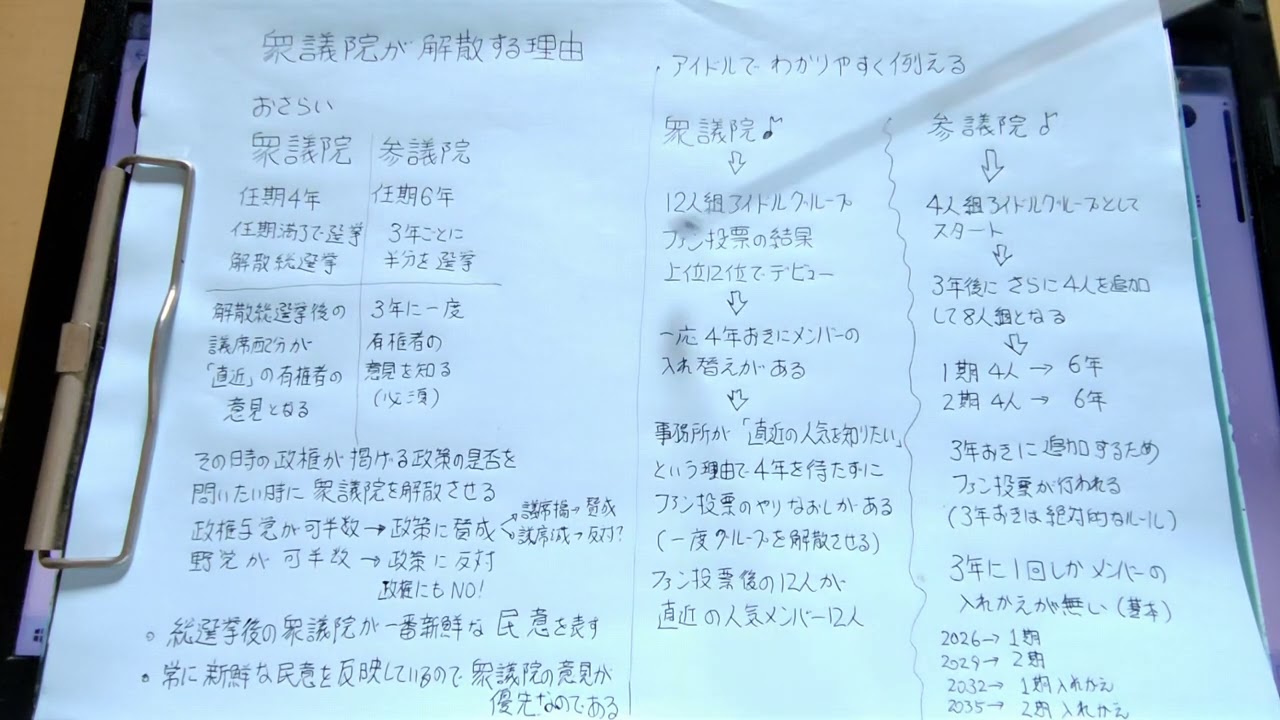 衆議院が解散する理由
おさらい
衆議院 参議院
任期4年 任期6年
任期満了で選挙 3年ごとに
解散総選挙 半分を選挙
解散総選挙後の 3年に一度
議席配分が 有権者の
「直近」の有権者の 意見を知る
意見となる (必須)
その時の政権が掲げる政策の是否を
問いたい時に衆議院を解散させる
政権与党が可半数→政策に賛成 議席増→賛成
議席減→反対?
野党が可半数→政策に反対
政権にもNO!
◦ 総選挙後の衆議院が一番新鮮な民意を表す
• 常に新鮮な民意を反映しているので衆議院の意見が
優先なのである
・アイドルでわかりやすく例える
衆議院♪
⇩
12人組アイドルグループ
ファン投票の結果
上位12位でデビュー
⇩
一応4年おきにメンバーの
入れ替えがある
⇩
事務所が「直近の人気を知りたい」
という理由で4年を待たずに
ファン投票のやりなおしがある
(一度グループを解散させる)
ファン投票後の12人が
直近の人気メンバー12人
参議院♪
⇩
4人組アイドルグループとして
スタート
⇩
3年後にさらに4人を追加
して8人組となる
⇩
1期4人→6年
2期4人→6年
3年おきに追加するため
ファン投票が行われる
(3年おきは絶対的なルール)
3年に1回しかメンバーの
入れかえが無い(基本)
2026→1期
2029→2期
2032→1期入れかえ
2035→2期入れかえ